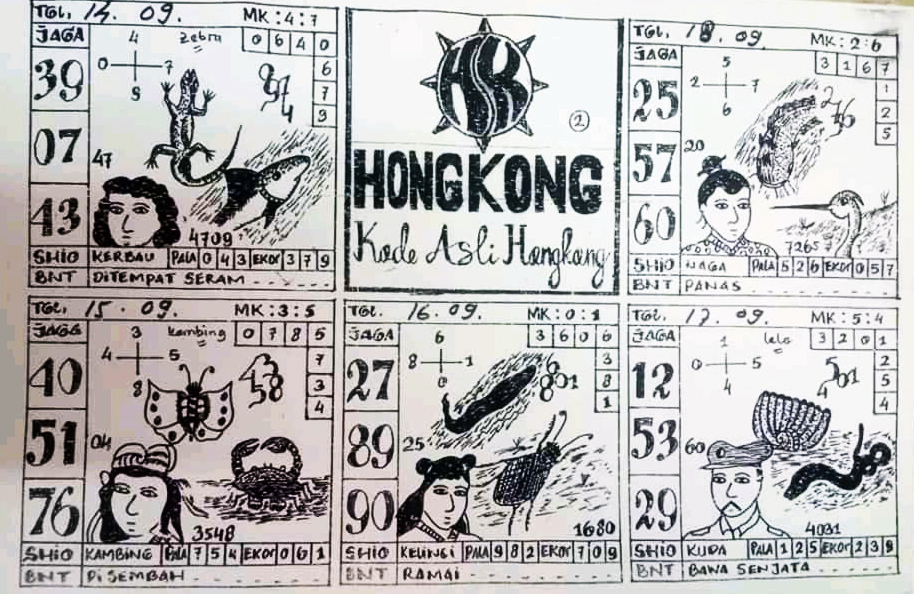 TGL. 14. 09. MK: 4: 7
JAGA 4 zebra 0 6 4 0
39 0 7 97 6
8 4 7
07 47 3
43 4709
SHIO KERBAU PALA 0 4 3 EKOR 3 7 9
BNT DITEMPAT SERAM
HK
2
HONGKONG
Kode Asli Hongkong
TGL. 18. 09. MK: 2: 6
JAGA 5 3 1 6 7
25 2 7 276 1
6 2
57 20 5
60 7265
SHIO NAGA PALA 5 2 6 EKOR 0 5 7
BNT PANAS
TGL. 15. 09. MK: 3: 5
JAGA 3 kambing 0 7 8 5
40 4 5 7
8 3
51 04 4
76 3548
SHIO KAMBING PALA 7 5 4 EKOR 0 6 1
BNT DISEMBAH
TGL. 16. 09. MK: 0: 1
JAGA 6 3 6 0 6
27 8 1 6 3
0 801 8
89 25 1
90 1680
SHIO KELINCI PALA 9 8 2 EKOR 7 0 9
BNT RAMAI
TGL. 17. 09. MK: 5: 4
JAGA 1 lele 3 2 0 1
12 0 5 501 2
4 5
53 60 4
29 4031
SHIO KUDA PALA 1 2 5 EKOR 2 3 9
BNT BAWA SENJATA